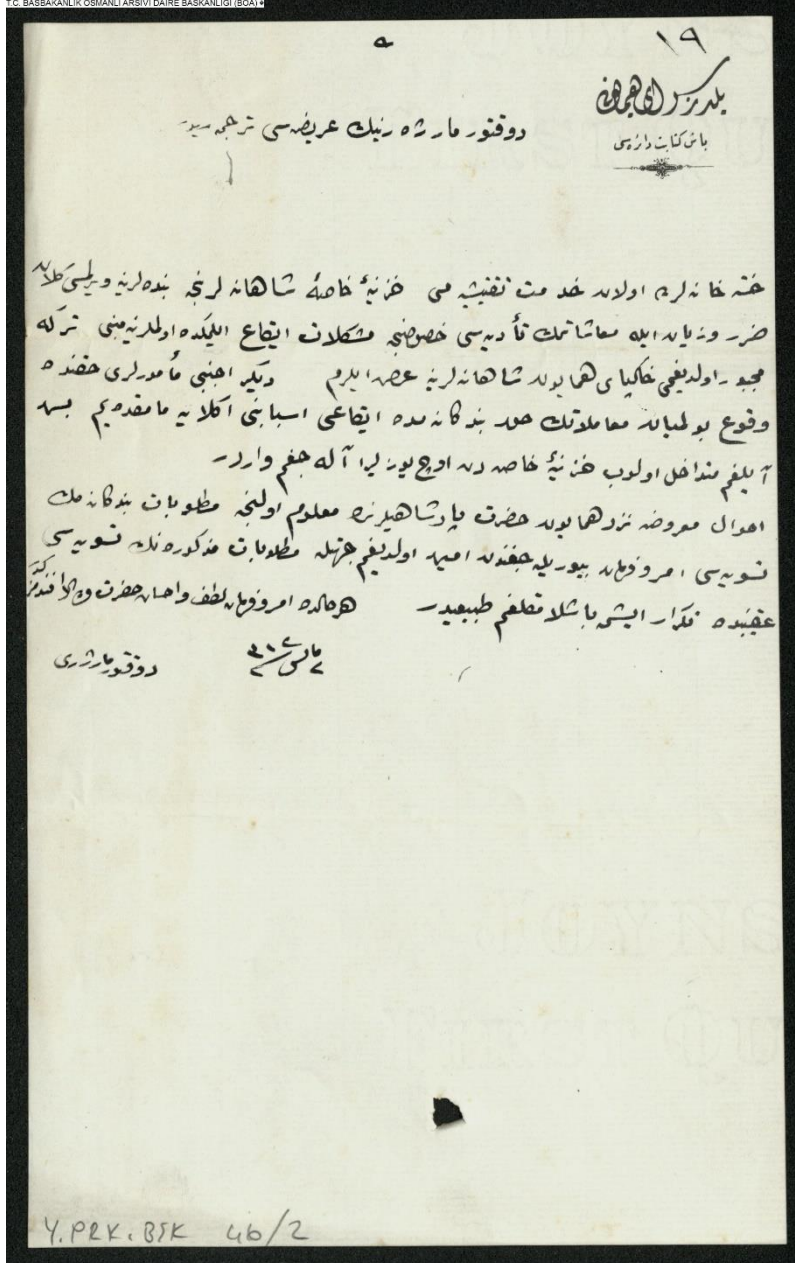 T.C. BAŞBAKANLIK OSMANLI ARŞİVİ DAİRE BAŞKANLIĞI (BOA)
١٩
يلديز سراى همايونى
باش كتابت دائره سى
دوقتور مارژه رينك عريضه سى ترجمه سيدر
خسته خانه لرده اولان خدمت تفتيشيه مى خزينهٔ خاصهٔ شاهانه لرنجه بنده لرينه ويرلمسى
ضرر و زيان ايله معاشاتمك تأديه سى خصوصنجه مشكلات ايقاع ايلمكده اولملرينه مبنى تركه
مجبور اولديغمى خاكپاى همايون شاهانه لرينه عرض ايلرم ديكر اجنبى مأمورلرى حقنده
وقوع بولميان معاملاتك حق بندكانه مده ايقاعى اسبابنى اكلايه مامقده يم بش
آيلغم متداخل اولوب خزينهٔ خاصه دن اوچ يوز ليرا آله جغم واردر
احوال معروضه نزد همايون حضرت پادشاهيلرنده معلوم اولنجه مطلوبات بندكانه مك
تسويه سى امر و فرمان بيوريله جغندن امين اولديغم جهتله مطلوبات مذكوره نك تسويه سى
عقبنده تكرار ايشه باشلامقلغم طبيعيدر هر حالده امر و فرمان لطف و احسان حضرت
دوقتور مارژرى
Y.PRK.BŞK 46/2